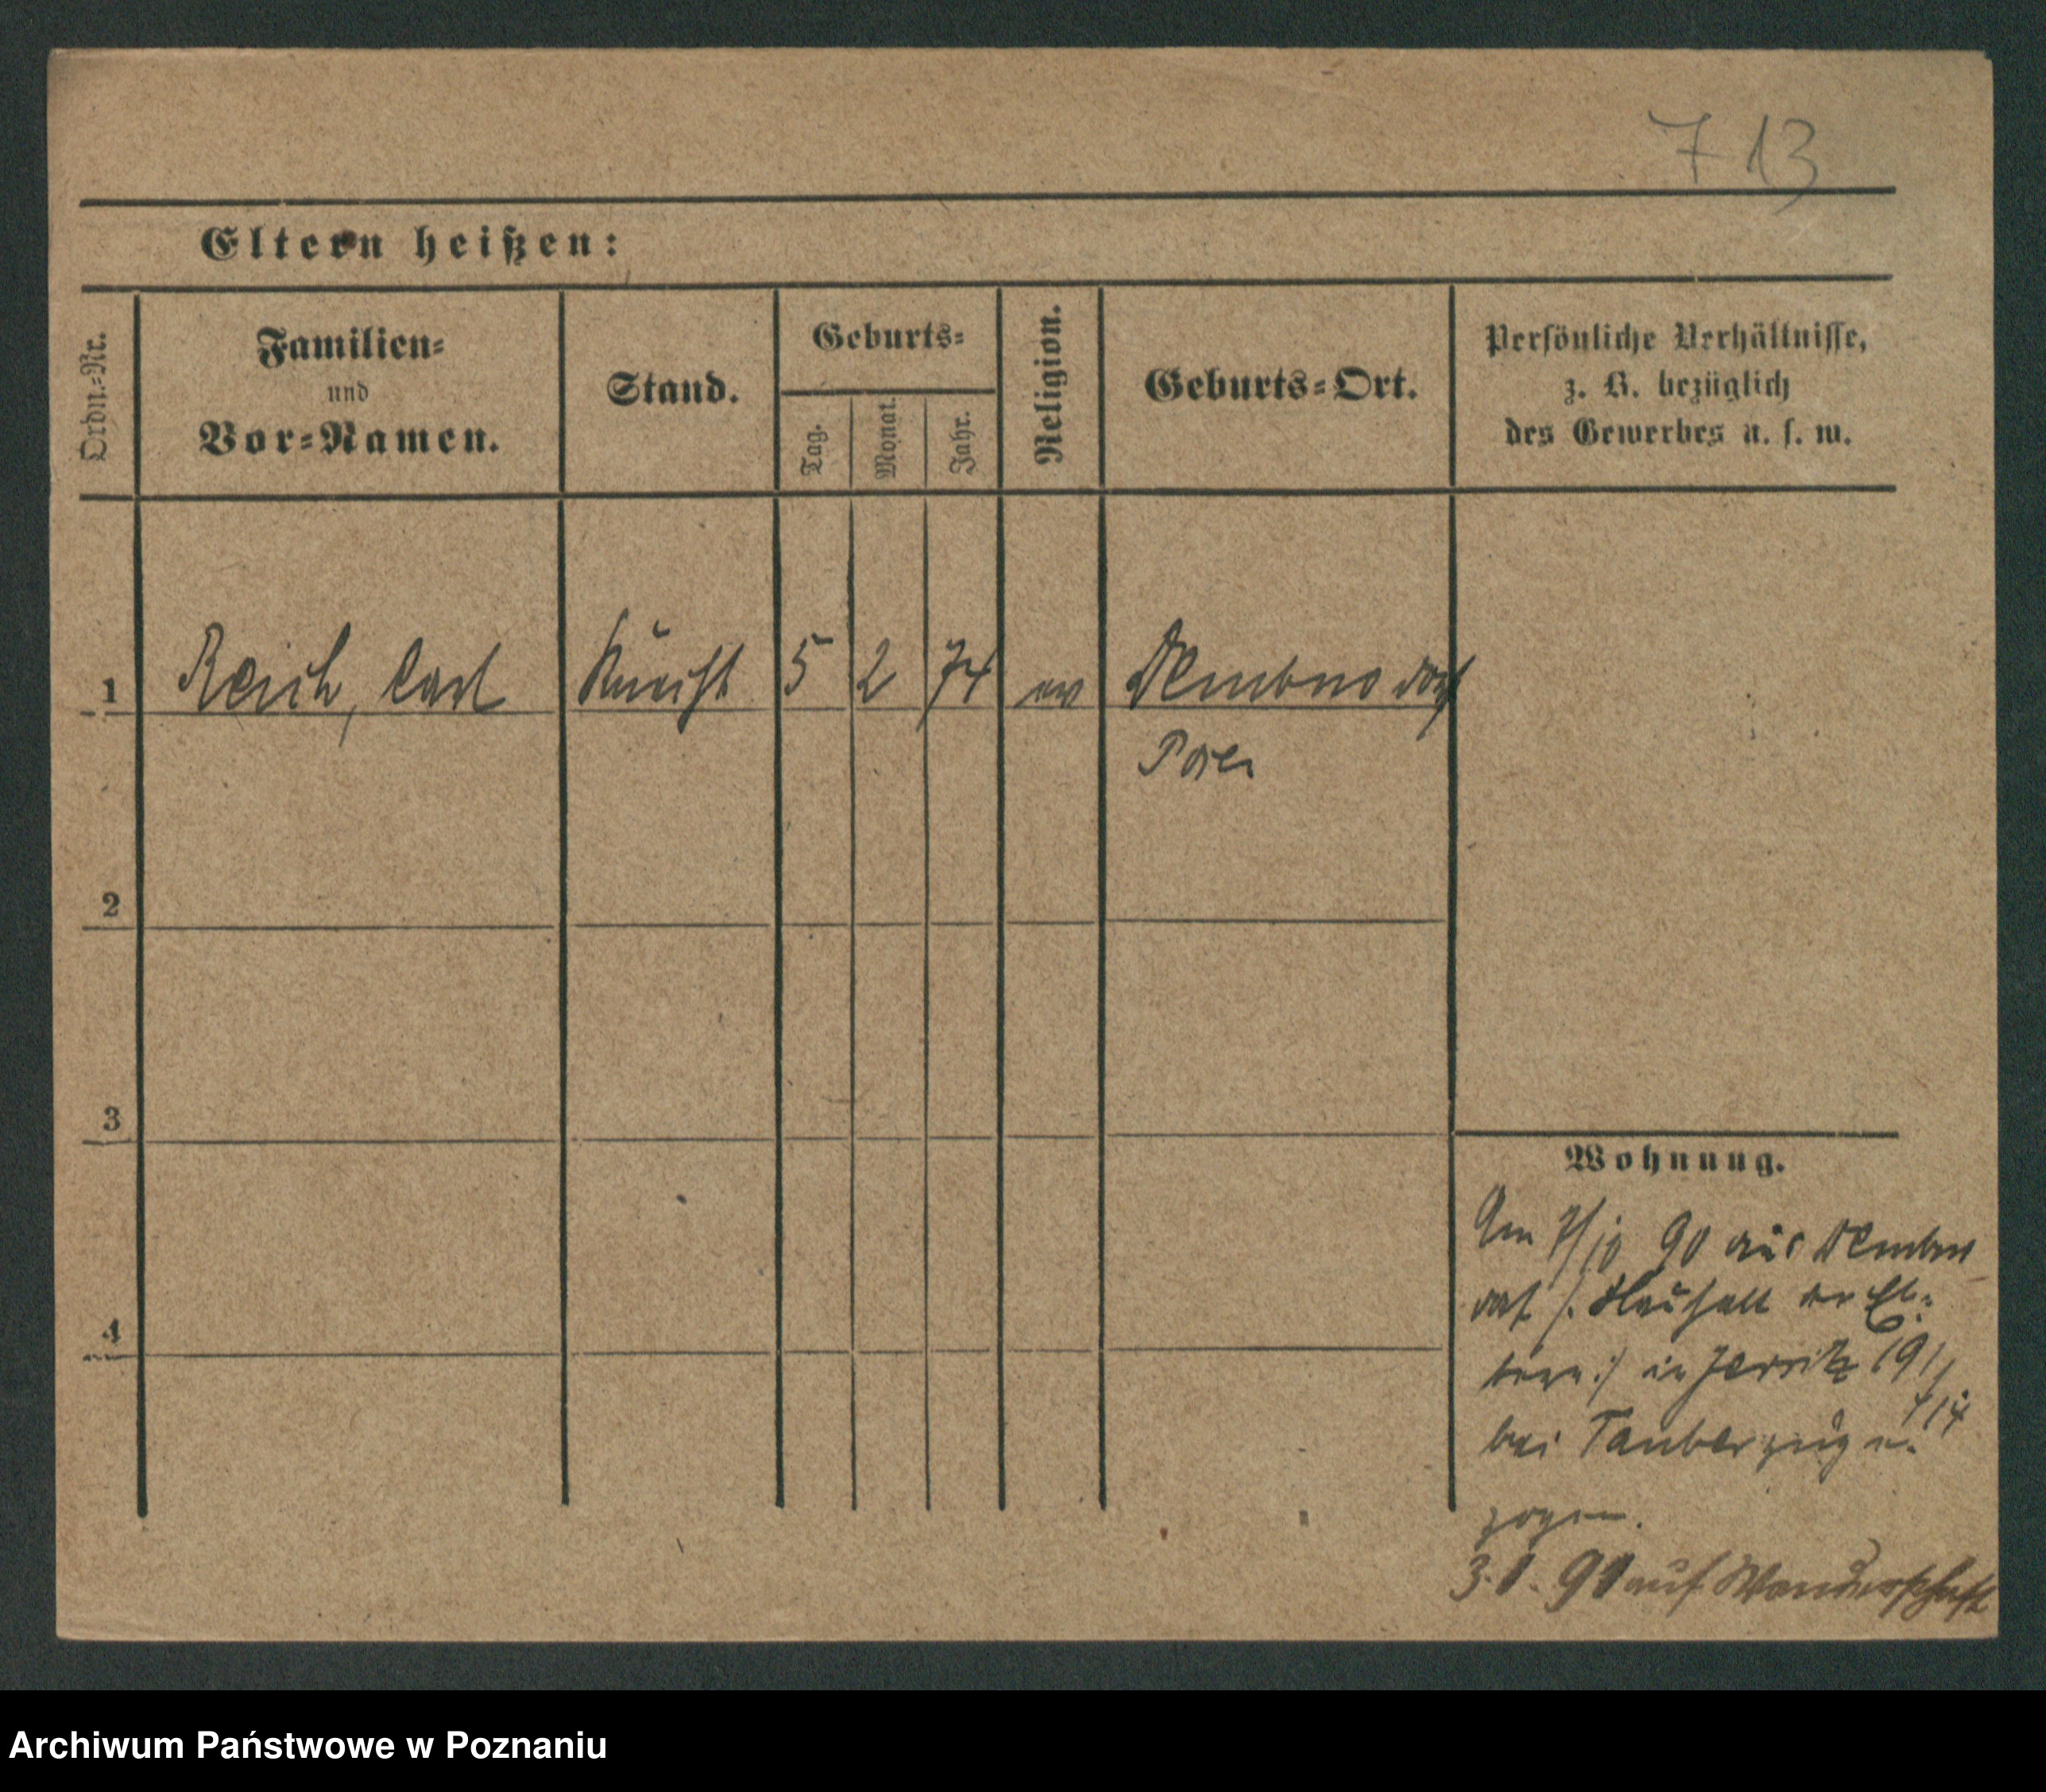 713
Eltern heißen:
Ordn.-Nr.
Familien-
und
Vor-Namen.
Stand.
Geburts-
Tag.
Monat.
Jahr.
Religion.
Geburts-Ort.
Persönliche Verhältnisse,
z. B. bezüglich
des Gewerbes u. s. w.
1 Reich, Carl Knecht 5 2 74 ev Dembno dorf
Posen
2
3
4
Wohnung.
Am 7/10 90 aus Dembno
in Jersitz 191
bei Tauber
zogen.
3.1.91 auf Wanderschaft
Archiwum Państwowe w Poznaniu